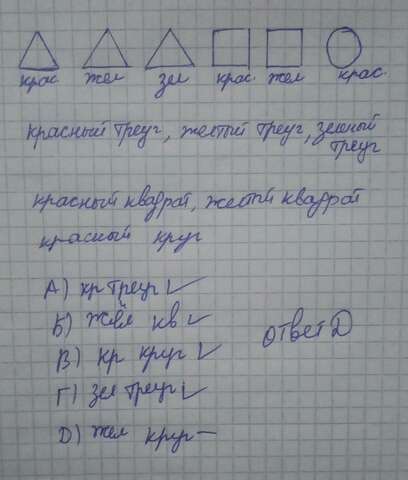 крас. жел зел крас. жел крас.
красный треуг, желтый треуг, зеленый
треуг
красный квадрат, желтый квадрат
красный круг
А) кр треуг ✓
Б) жёл кв ✓
В) кр круг ✓
Г) зел треуг ✓
D) жел круг —
ответ D